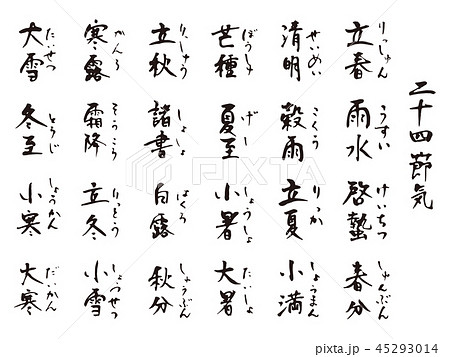 二十四節気
立春 りっしゅん
雨水 うすい
啓蟄 けいちつ
春分 しゅんぶん
清明 せいめい
穀雨 こくう
立夏 りっか
小満 しょうまん
芒種 ぼうしゅ
夏至 げし
小暑 しょうしょ
大暑 たいしょ
立秋 りっしゅう
諸書 しょしょ
白露 はくろ
秋分 しゅうぶん
寒露 かんろ
霜降 そうこう
立冬 りっとう
小雪 しょうせつ
大雪 たいせつ
冬至 とうじ
小寒 しょうかん
大寒 だいかん
PIXTA
pixta.jp - 45293014